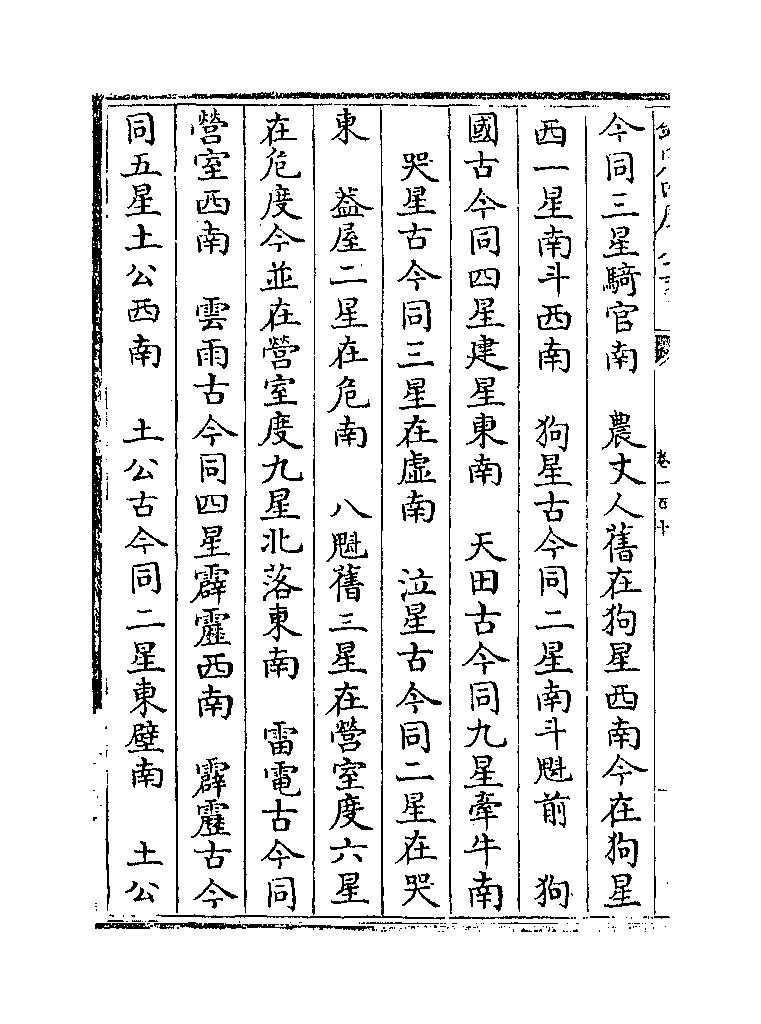 今同三星騎官南　農丈人舊在狗星西南今在狗星
西一星南斗西南　狗星古今同二星南斗魁前　狗
國古今同四星建星東南　天田古今同九星牽牛南
哭星古今同三星在虛南　泣星古今同二星在哭
東　葢屋二星在危南　八魁舊三星在營室度六星
在危度今並在營室度九星北落東南　雷電古今同
營室西南　雲雨古今同四星霹靂西南　霹靂古今
同五星土公西南　土公古今同二星東壁南　土公
卷一百十